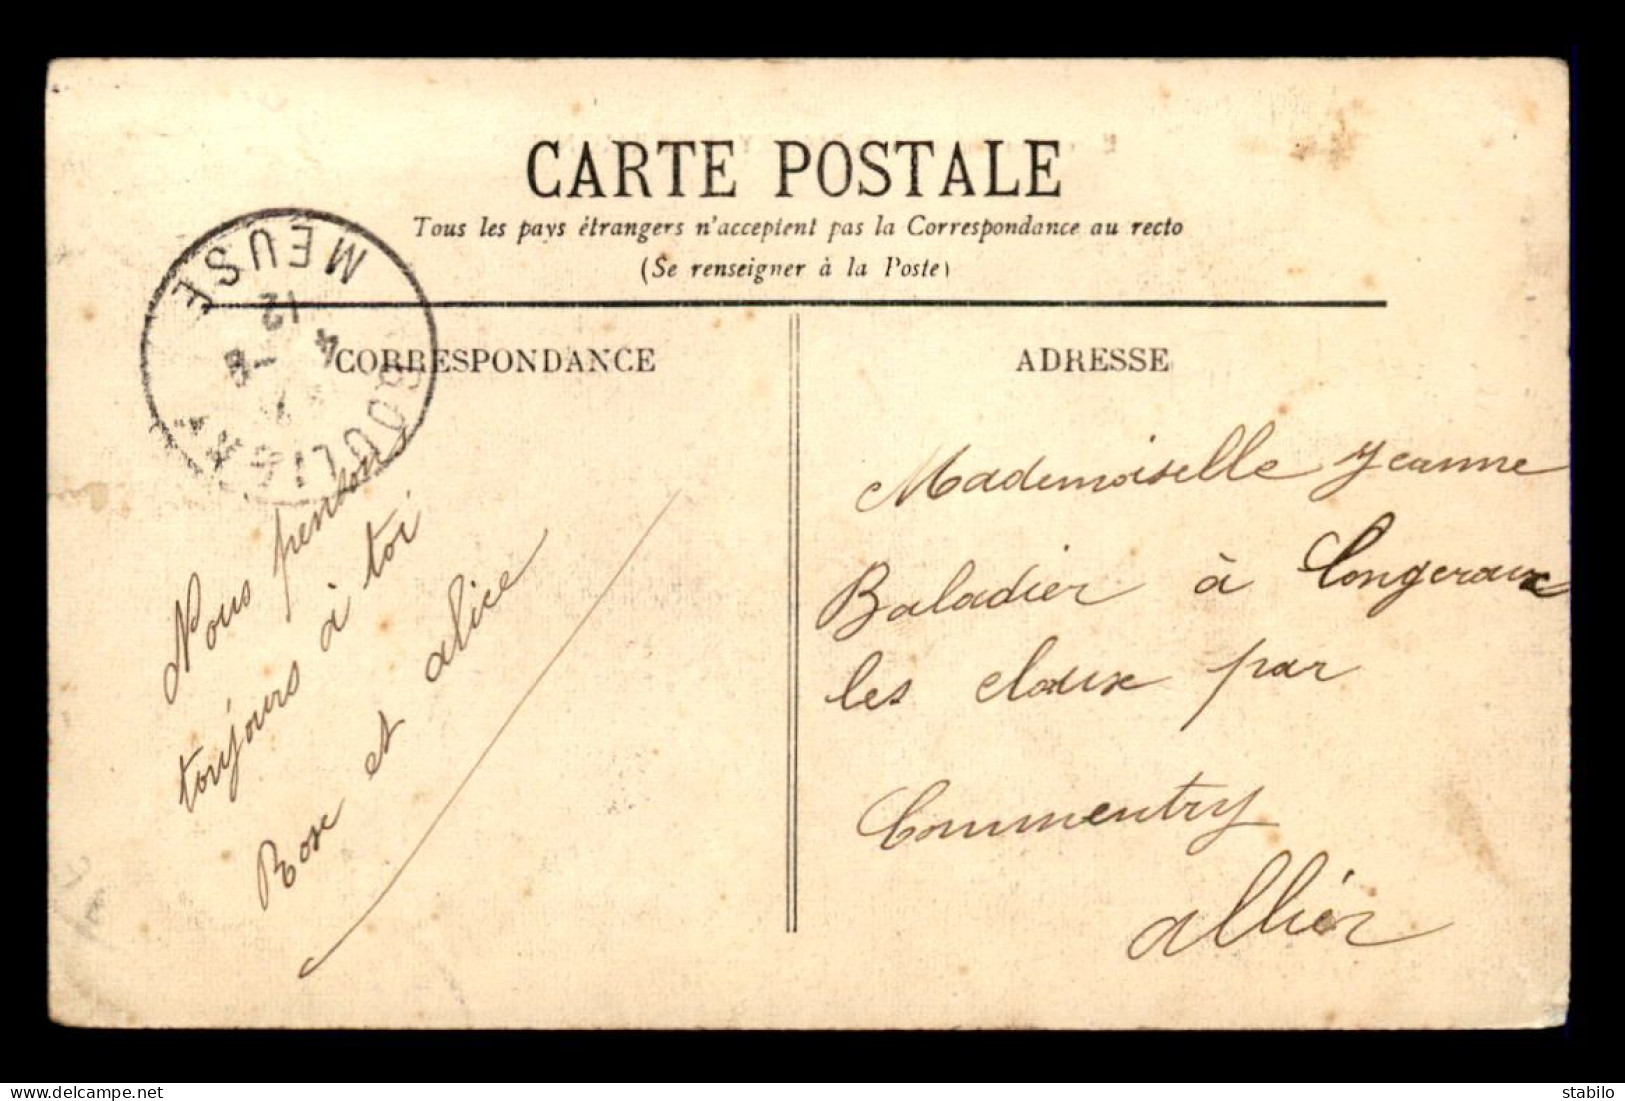 CARTE POSTALE
Tous les pays étrangers n'acceptent pas la Correspondance au recto
(Se renseigner à la Poste)
MEUSE
12
4 -8
CORRESPONDANCE
Nous pensons
toujours à toi
Rose et alice
ADRESSE
Mademoiselle Jeanne
Baladier à Longeroux
les claux par
Commentry
allier
delcampe.net
stabilo